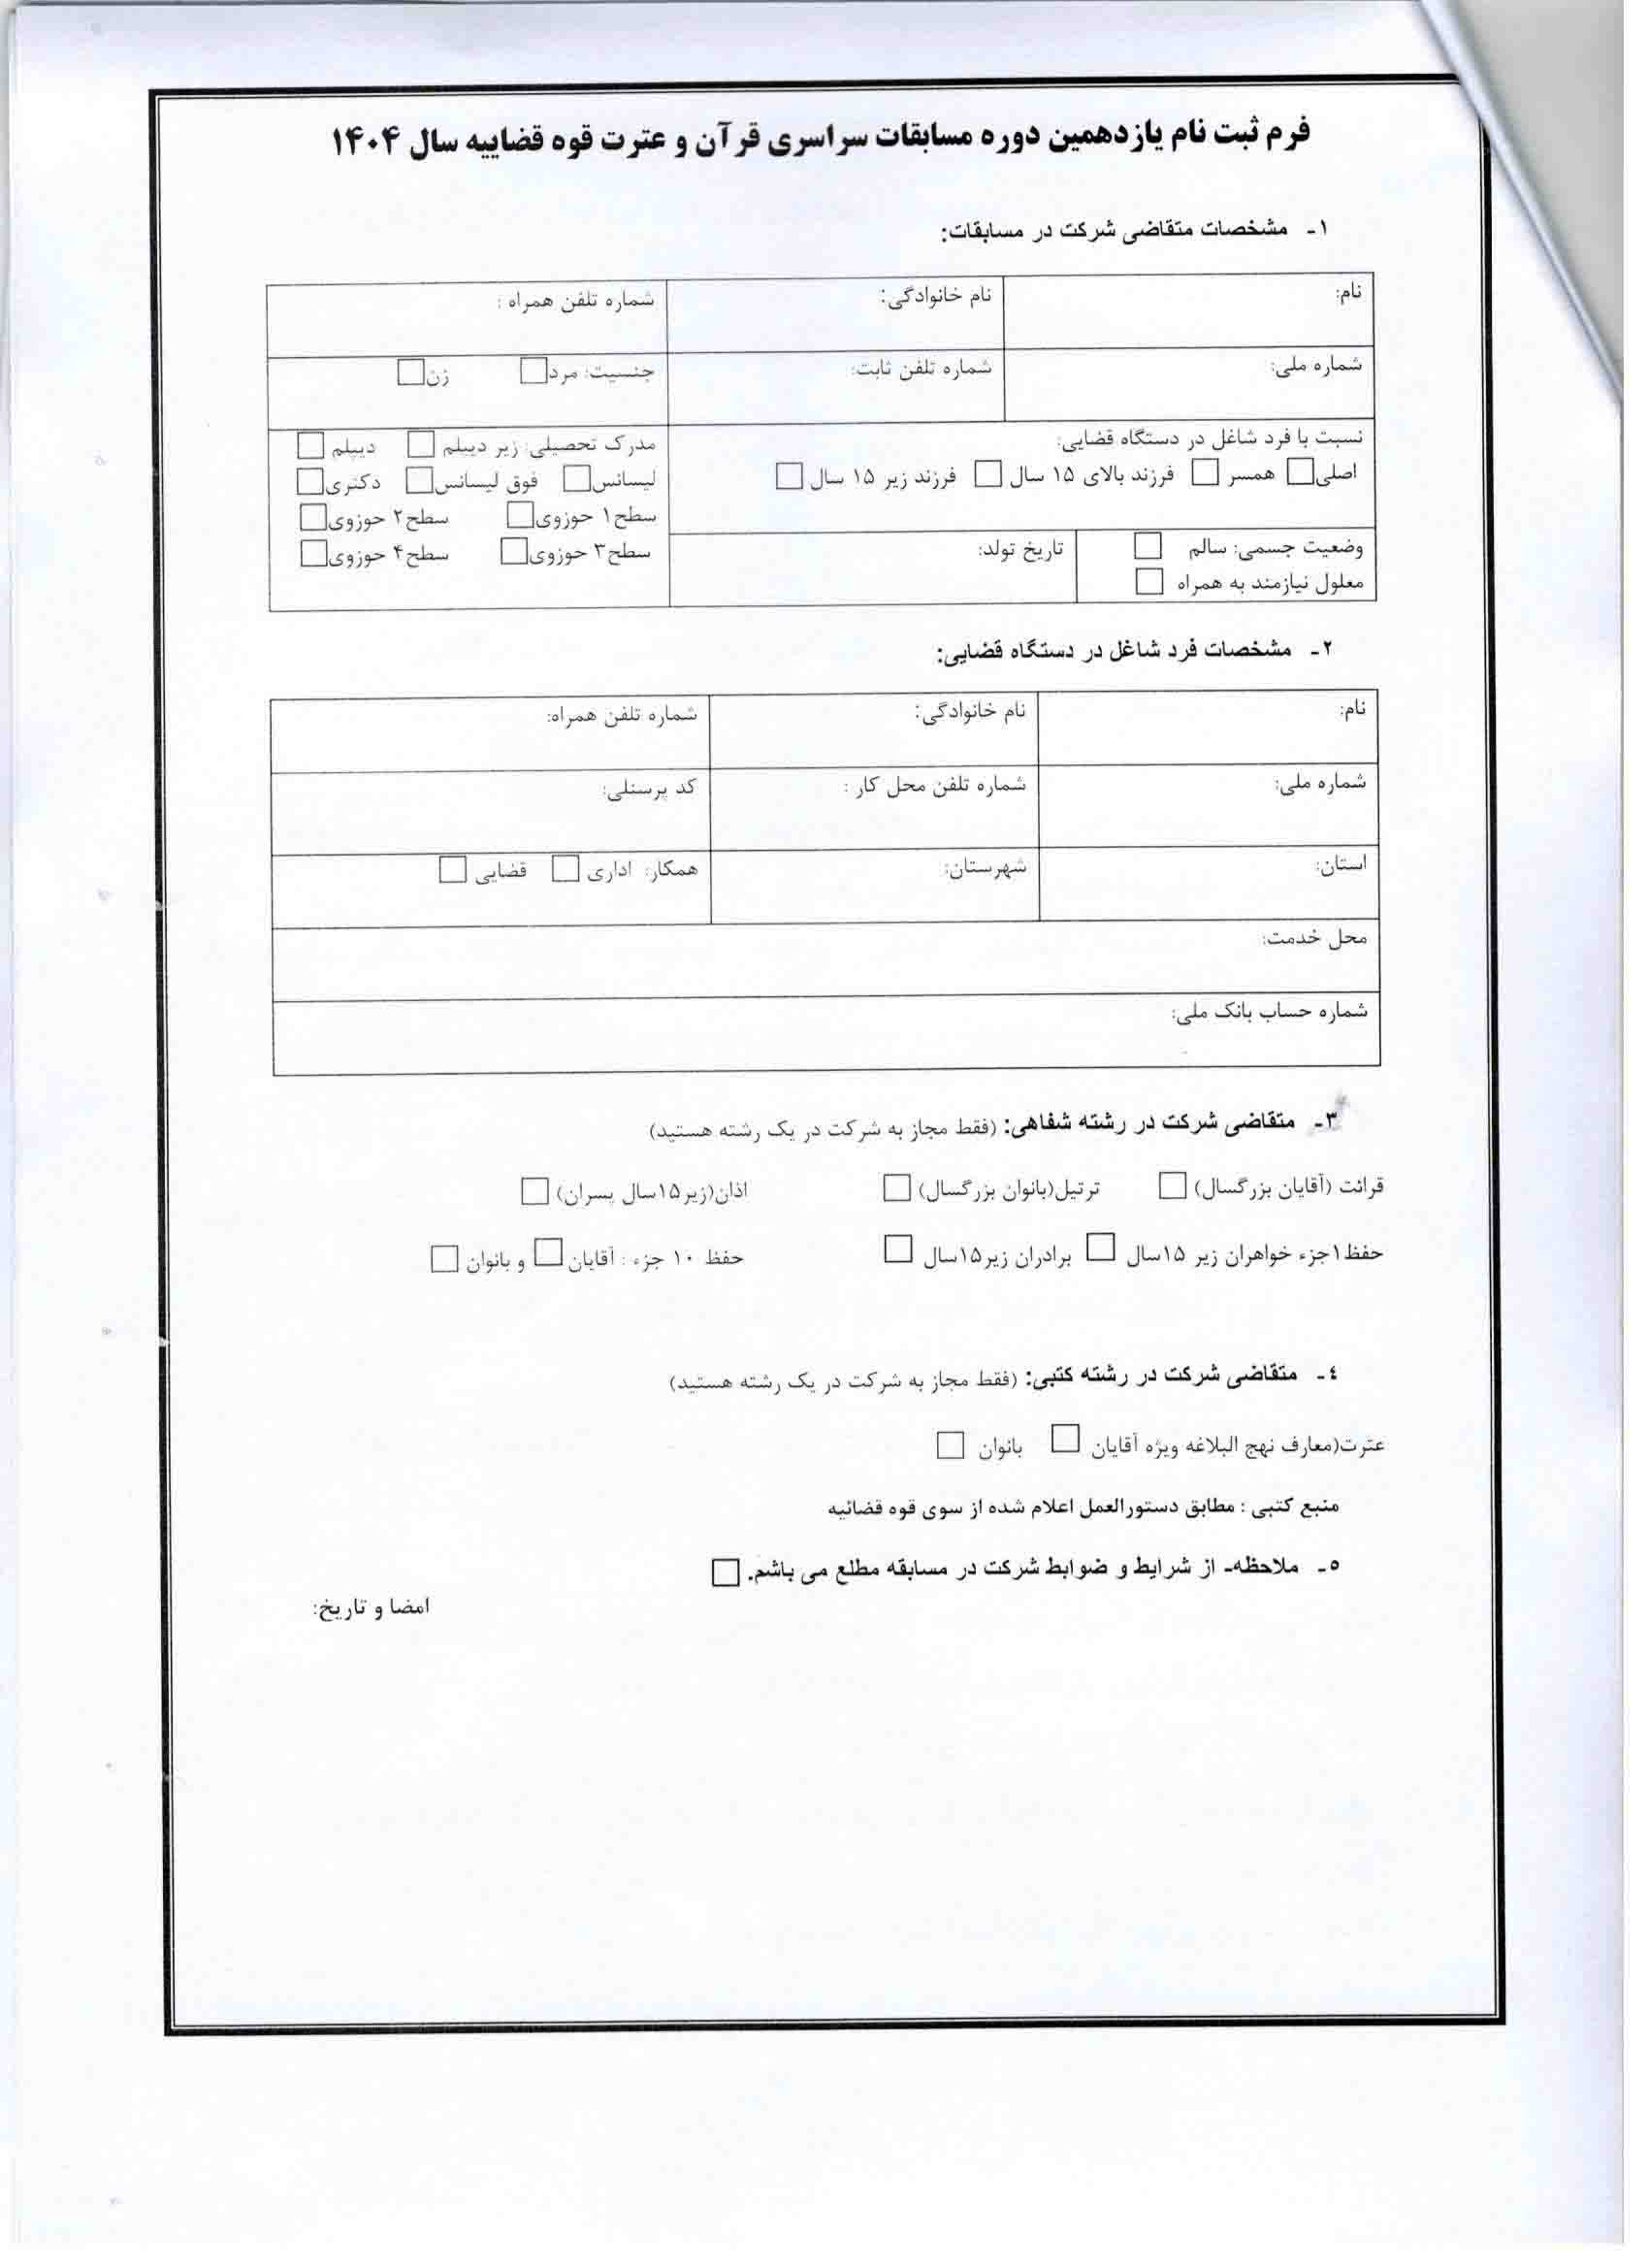 فرم ثبت نام یازدهمین دوره مسابقات سراسری قرآن و عترت قوه قضاییه سال ۱۴۰۴
۱- مشخصات متقاضی شرکت در مسابقات:
نام: نام خانوادگی: شماره تلفن همراه :
شماره ملی: شماره تلفن ثابت: جنسیت: مرد☐ زن☐
نسبت با فرد شاغل در دستگاه قضایی:
اصلی☐ همسر ☐ فرزند بالای ۱۵ سال ☐ فرزند زیر ۱۵ سال ☐
مدرک تحصیلی: زیر دیپلم ☐ دیپلم ☐
لیسانس☐ فوق لیسانس☐ دکتری☐
سطح۱ حوزوی☐ سطح۲ حوزوی☐
سطح۳ حوزوی☐ سطح۴ حوزوی☐
وضعیت جسمی: سالم ☐
معلول نیازمند به همراه ☐
تاریخ تولد:
۲- مشخصات فرد شاغل در دستگاه قضایی:
نام: نام خانوادگی: شماره تلفن همراه:
شماره ملی: شماره تلفن محل کار : کد پرسنلی:
استان: شهرستان: همکار: اداری ☐ قضایی ☐
محل خدمت:
شماره حساب بانک ملی:
۳- متقاضی شرکت در رشته شفاهی: (فقط مجاز به شرکت در یک رشته هستید)
قرائت (آقایان بزرگسال) ☐ ترتیل(بانوان بزرگسال) ☐ اذان(زیر۱۵سال پسران) ☐
حفظ۱جزء خواهران زیر ۱۵سال ☐ برادران زیر۱۵سال ☐ حفظ ۱۰ جزء : آقایان☐ و بانوان ☐
٤- متقاضی شرکت در رشته کتبی: (فقط مجاز به شرکت در یک رشته هستید)
عترت(معارف نهج البلاغه ویژه آقایان ☐ بانوان ☐
منبع کتبی : مطابق دستورالعمل اعلام شده از سوی قوه قضائیه
۵- ملاحظه- از شرایط و ضوابط شرکت در مسابقه مطلع می باشم. ☐
امضا و تاریخ: